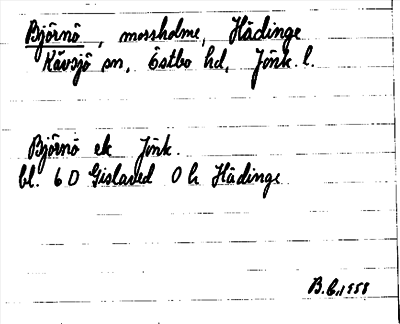 Björnö, mossholme, Hädinge
Kävsjö sn, Östbo hd, Jönk. l.
Björnö ek Jönk.
bl. 6 D Gislaved O h Hädinge
B.E. 1958